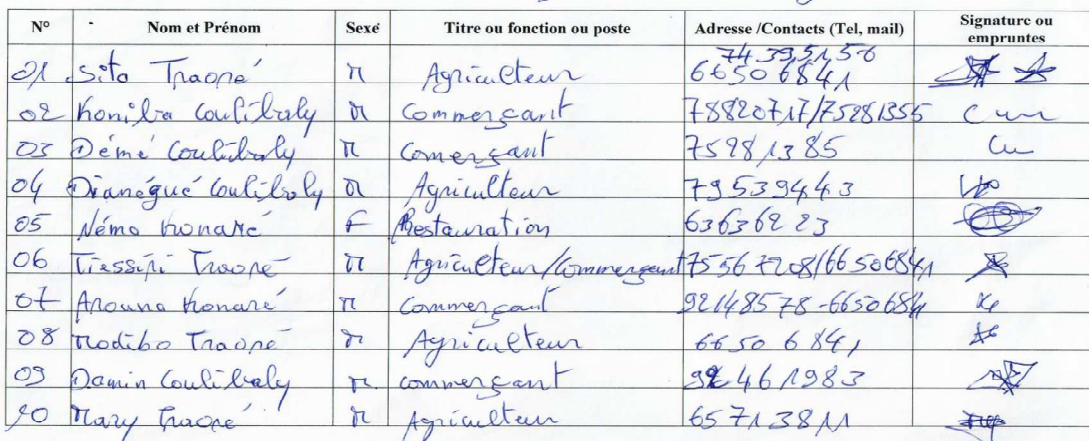 N° Nom et Prénom Sexé Titre ou fonction ou poste Adresse /Contacts (Tel, mail) Signature ou empruntes
01 Sita Traoré M Agriculteur 74 39 51 50 66506841
02 Koniba Coulibaly M Commerçant 78820717/75281355
03 Démé Coulibaly M Comerçant 75981385
04 Dianégué Coulibaly M Agriculteur 79539443
05 Néma Konaré F Restauration 63636223
06 Tiessiri Traoré M Agriculteur/Commerçant 75567208/66506841
07 Arouna Konaré M Commerçant 92148578-6650684
08 Modibo Traoré M Agriculteur 66506841
09 Damin Coulibaly M commerçant 92461983
10 Mary Traoré M Agriculteur 65713811